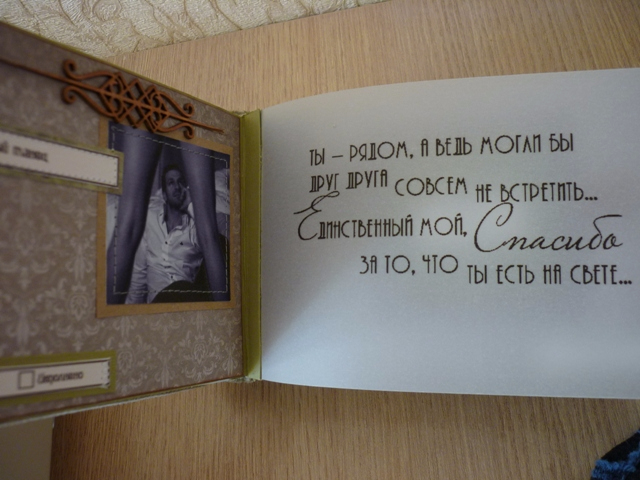 ТЫ – РЯДОМ, А ВЕДЬ МОГЛИ БЫ
ДРУГ ДРУГА СОВСЕМ НЕ ВСТРЕТИТЬ...
ЕДИНСТВЕННЫЙ МОЙ, Спасибо
ЗА ТО, ЧТО ТЫ ЕСТЬ НА СВЕТЕ...